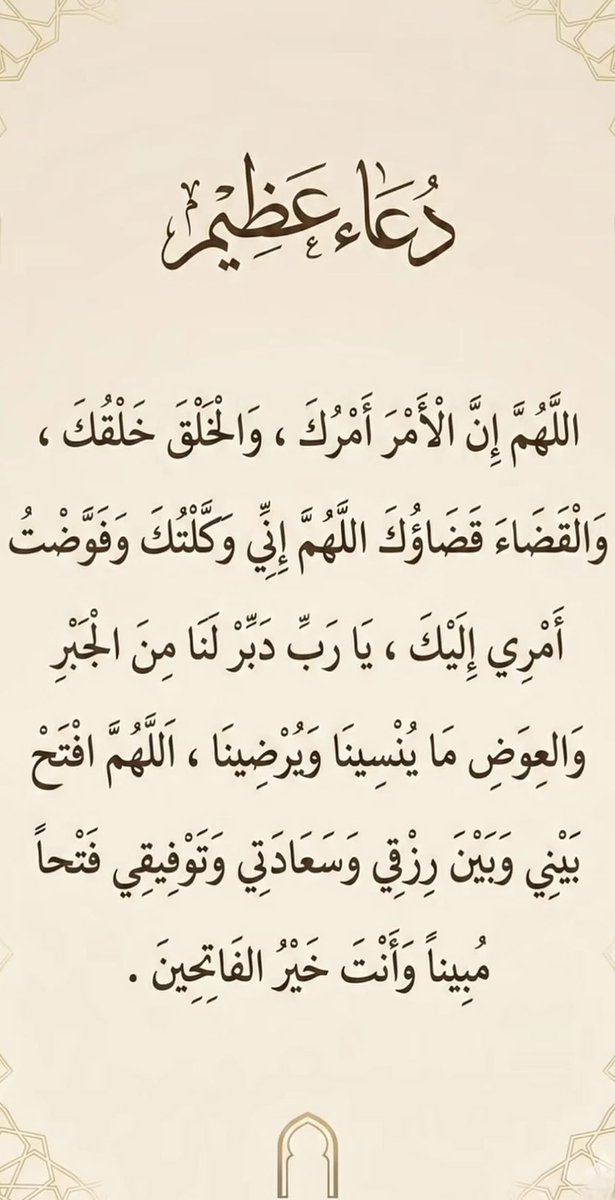 دُعَاء عَظِيْم
اللَّهُمَّ إِنَّ الْأَمْرَ أَمْرُكَ ، وَالْخَلْقَ خَلْقُكَ ،
وَالْقَضَاءَ قَضَاؤُكَ اللَّهُمَّ إِنِّي وَكَّلْتُكَ وَفَوَّضْتُ
أَمْرِي إِلَيْكَ ، يَا رَبِّ دَبِّرْ لَنَا مِنَ الْجَبْرِ
وَالعِوَضِ مَا يُنْسِينَا وَيُرْضِينَا ، اَللَّهُمَّ افْتَحْ
بَيْنِي وَبَيْنَ رِزْقِي وَسَعَادَتِي وَتَوْفِيقِي فَتْحاً
مُبِيناً وَأَنْتَ خَيْرُ الفَاتِحِينَ .